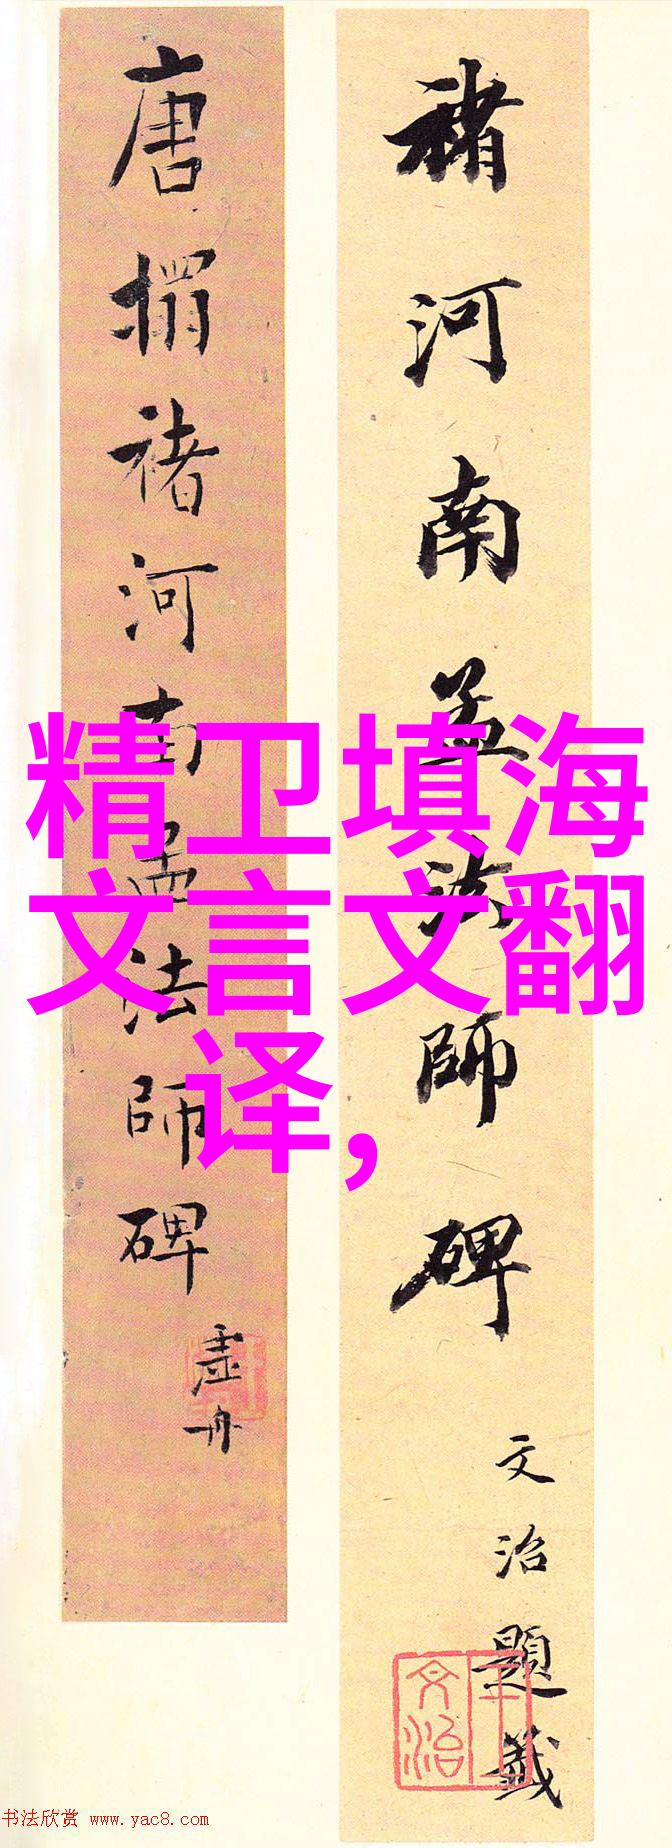 褚河南孟法師碑
文治題籤
王文治
唐搨褚河南孟法師碑
虚舟
精卫填海
文言文翻
译,
书法欣赏 www.yac8.com